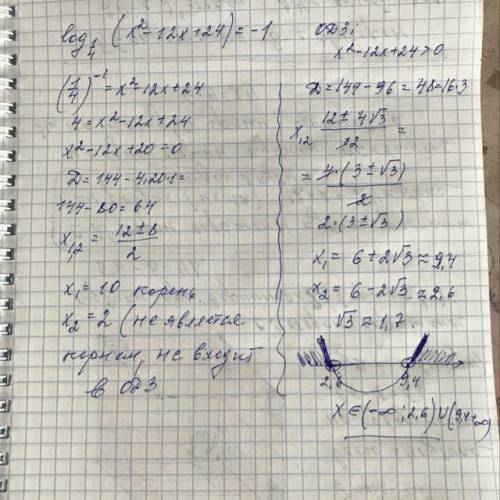 log 1/4 (x²-12x+24) = -1
(1/4)⁻¹ = x²-12x+24
4 = x²-12x+24
x²-12x+20=0
D=144-4·20·1=
144-80=64
x₁,₂ = (12±8)/2
x₁=10 корень.
x₂=2 (не является
корнем, не входит
в ОДЗ
ОДЗ:
x²-12x+24>0
D=144-96=48=16·3
x₁,₂ (12±4√3)/2 =
= 4·(3±√3)/2
2·(3±√3)
x₁= 6+2√3 ≈ 9,4
x₂= 6-2√3 ≈ 2,6
√3 ≈ 1,7.
2,6 9,4
x∈(-∞; 2,6)∪(9,4;+∞)